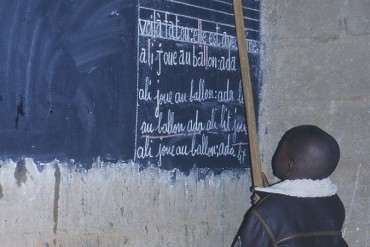 voilà fatou: elle est avec une
ali joue au ballon: ada
ali joue au ballon: ada l
au ballon ada ali lit joue
ali joue au ballon: ada